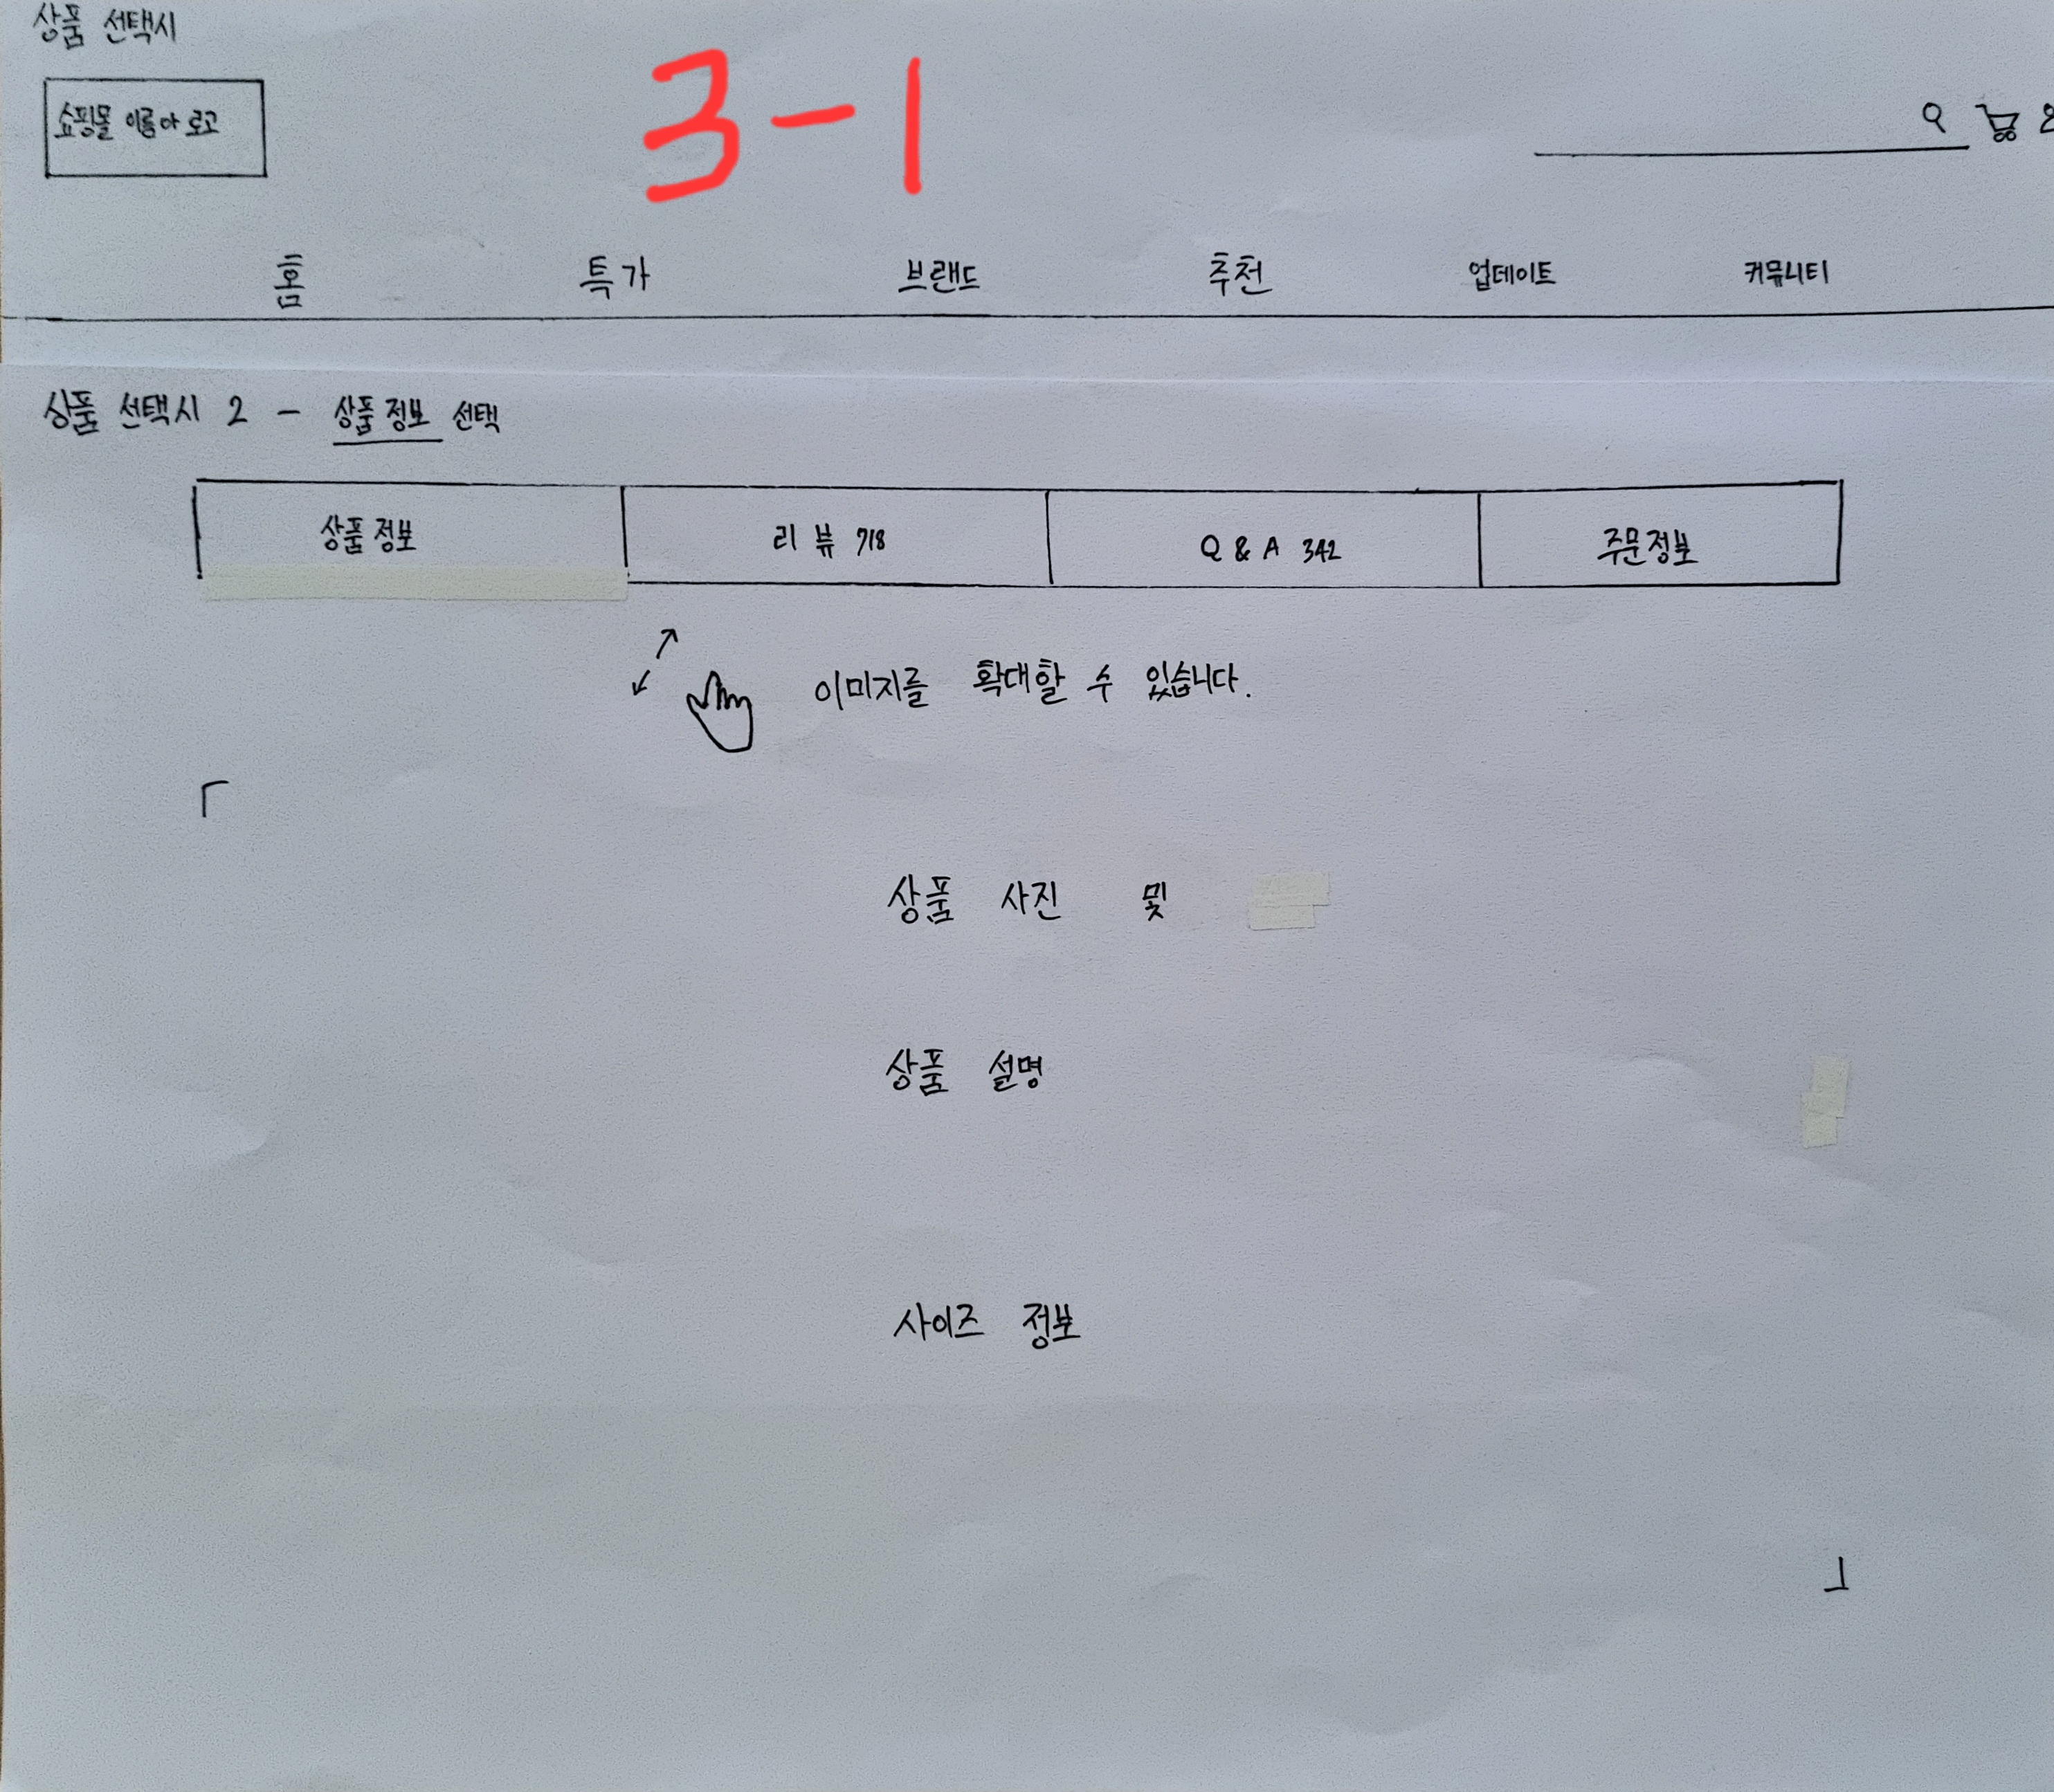 상품 선택시
3-1
쇼핑몰 이름이 로고
홈 특가 브랜드 추천 업데이트 커뮤니티
상품 선택시 2 - 상품정보 선택
상품정보 리뷰 718 Q & A 342 주문정보
이미지를 확대할 수 있습니다.
「
상품 사진 및
상품 설명
사이즈 정보
」